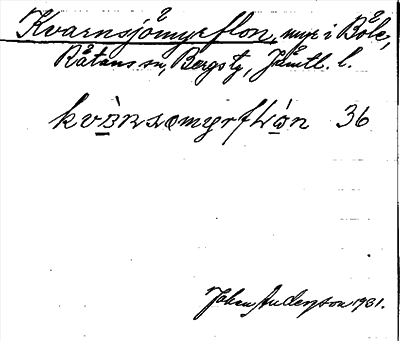 Kvarnsjömyrflon, myr i Böle,
Rätans sn, Bergs tg, Jämtl. l.
kvὰnsœmyrflὼn 36
John Anderson 1931.